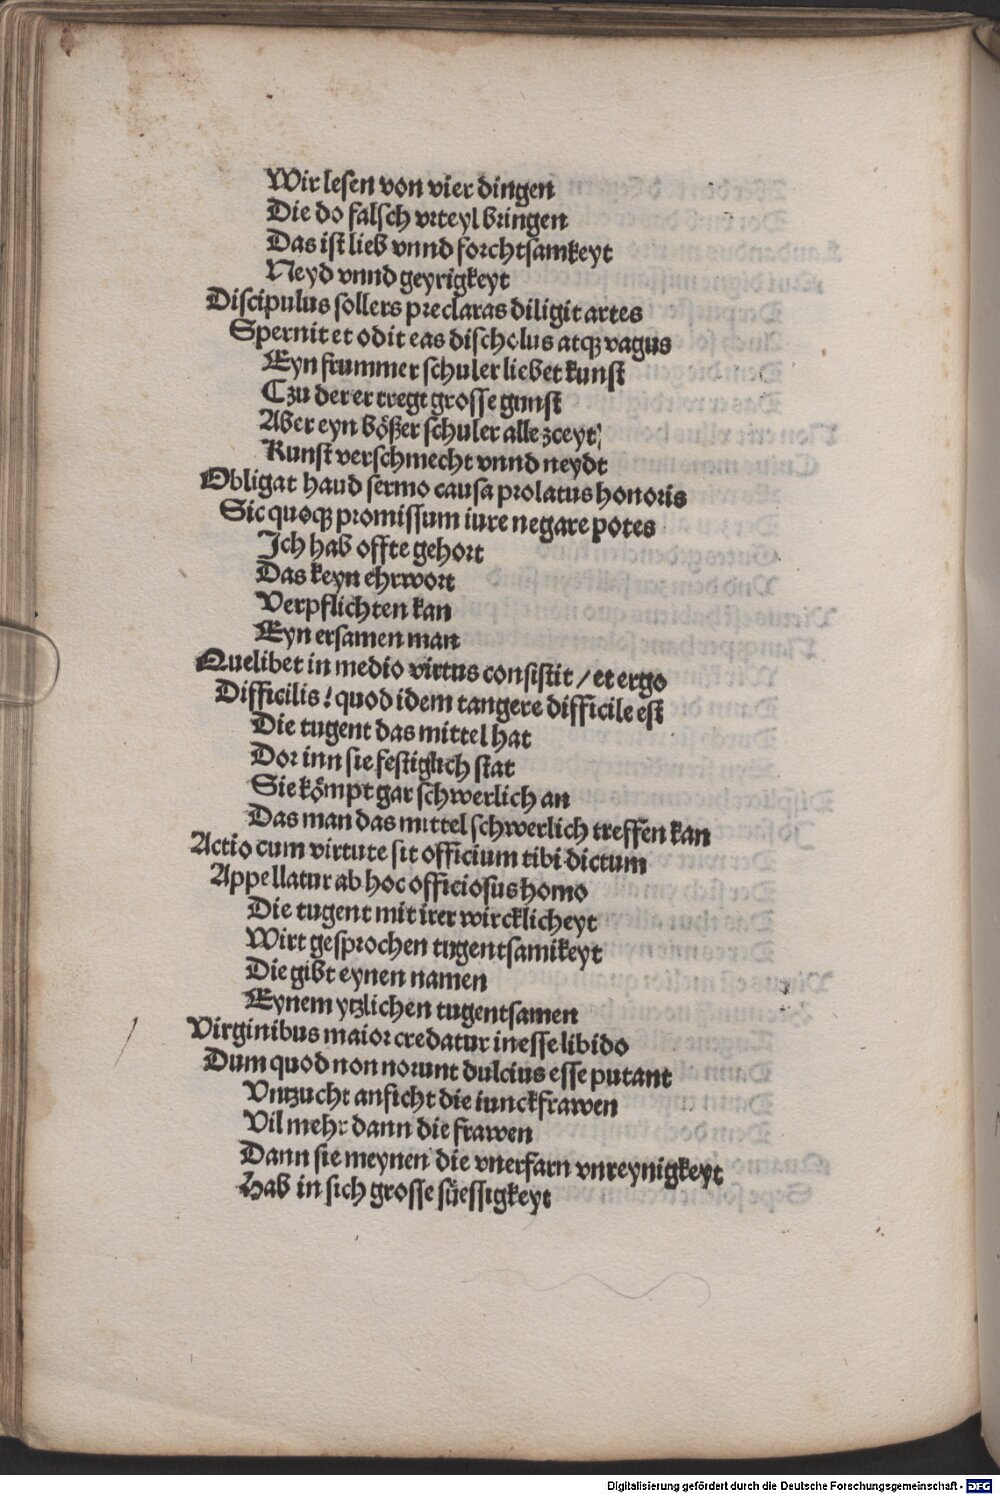 Wir lesen von vier dingen
Die do falsch vrteyl bringen
Das ist lieb vnnd forchtsamkeyt
Neyd vnnd geyrigkeyt
Discipulus sollers preclaras diligit artes
Spernit et odit eas discholus atqꝫ vagus
Eyn frummer schuler liebet kunst
Czu der er tregt grosse gunst
Aber eyn bößer schuler alle zceyt
Kunst verschmecht vnnd neydt
Obligat haud sermo causa prolatus honoris
Sic quoqꝫ promissum iure negare potes
Ich hab offte gehort
Das keyn ehrwort
Verpflichten kan
Eyn ersamen man
Quelibet in medio virtus consistit / et ergo
Difficilis! quod idem tangere difficile est
Die tugent das mittel hat
Dor inn sie festiglich stat
Sie kömpt gar schwerlich an
Das man das mittel schwerlich treffen kan
Actio cum virtute sit officium tibi dictum
Appellatur ab hoc officiosus homo
Die tugent mit irer wircklicheyt
Wirt gesprochen tugentsamikeyt
Die gibt eynen namen
Eynem ytzlichen tugentsamen
Virginibus maior credatur inesse libido
Dum quod non norunt dulcius esse putant
Vntzucht anficht die iunckfrawen
Vil mehr dann die frawen
Dann sie meynen die vnerfarn vnreynigkeyt
Hab in sich grosse süessigkeyt
Digitalisierung gefördert durch die Deutsche Forschungsgemeinschaft - DFG